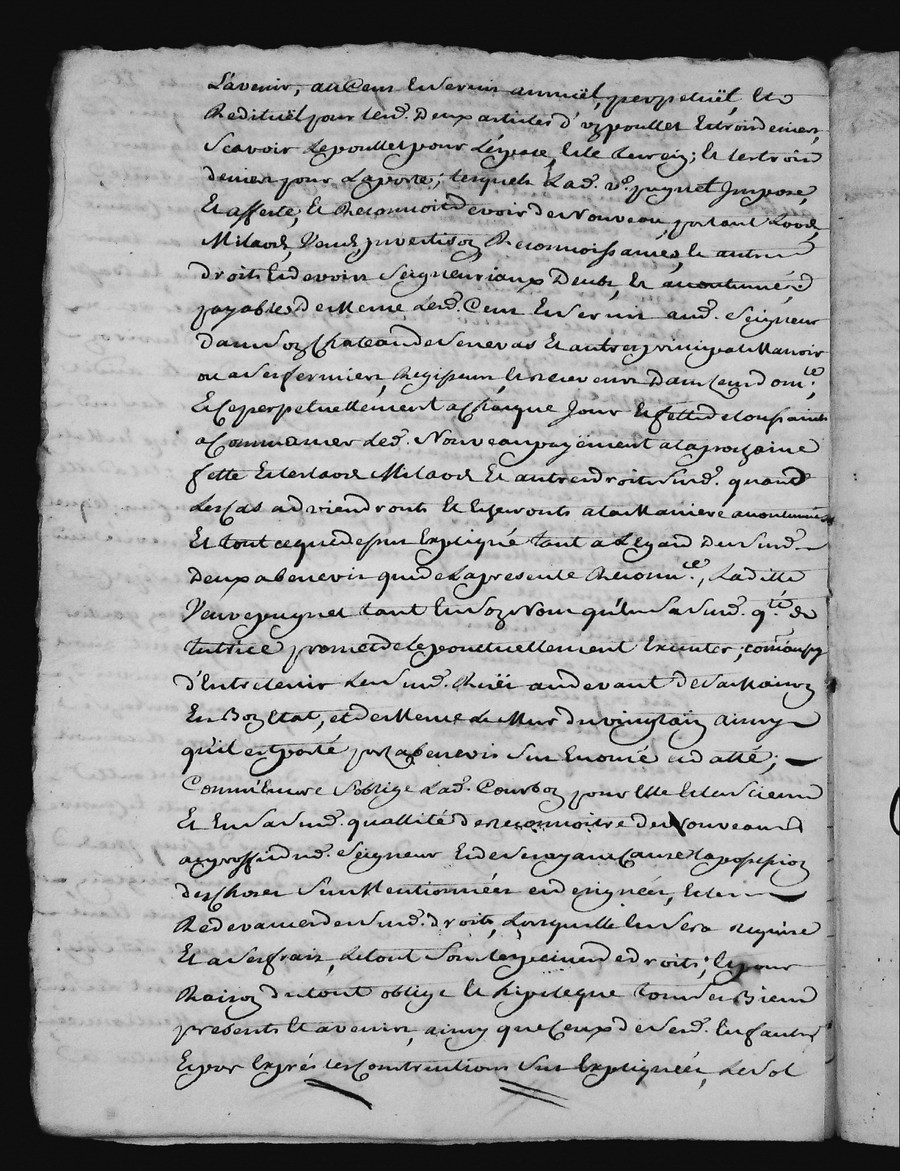 L'avenir, au Cens En Servis annuël, perpetuël, Et
Redituël pour lesd. Deux articles d'un poullet Et trois deniers,
Scavoir Le poullet pour L'espace, Et le terrein; Et les trois
deniers pour La porte; lesquels Lad. ve. pugnet Impose,
Et affecte, Et Reconnoit devoir de Nouveau, portant Loods,
Milaods, Vends, jnvestison Reconnoissances, Et autres
droits Et devoirs Seigneuriaux Deubs, Et accoutumés
payables De Meme Lesd. Cens En Servis aud. Seigneur
dans Son Chateau de Senevas Et autres principal Manoir
ou a Ses fermiers, Regisseurs, Et receveurs Dans Leur dom.le;
Et Ce perpetuellement a Chaque Jour Et fette de toussaints
a Commancer Led. Nouveau payëment a la prochaine
fette Et Les laods Milaods Et autres droits Susd. quand
Les Cas adviendronts Et Echeronts a la Maniere accoutumée
Et tout ce que dessus Expliqué tant a L'egard Des Susd.
Deux abenevis que de La presente Reconn.ce, Laditte
Veuve pugnet tant En Son Nom qu'En Sa Susd. q.té de
tutrice promet de Le ponctuellement Executer; comm' aussy
d'Entretenir Les Susd. Ruës au devant De Sa Maison
En Bon Etat, et de Meme Le Mur du vingtain ainsy
qu'il est porté par L'abenevis Sus Enoncé Et datté;
Comm' Encore S'oblige Lad. Courbon pour Elle Et Les Siens
Et En Sa Susd. quallité de reconnoitre de Nouveau
au proffit dud. Seigneur Et de Ses ayant Cause La possession
des Choses Sus Mentionnées et designées, Et les
Redevances des Susd. droits, Lorsqu'elle En Sera requise
Et a Ses frais, Le tout Sous les peines de droits; Et pour
Raison du tout oblige Et hipoteque tous Ses Biens
presents Et avenir, ainsy que Ceux de Sesd. Enfants
Et par Exprés Les Constructions Sus Expliquées, Le Sol